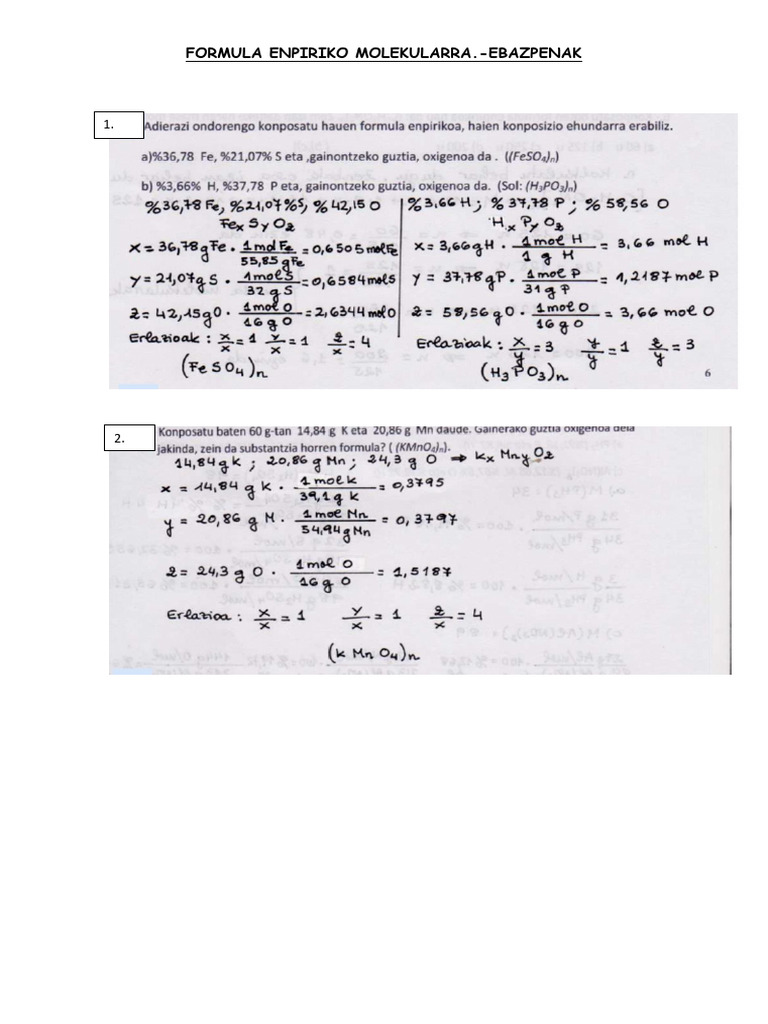 FORMULA ENPIRIKO MOLEKULARRA.-EBAZPENAK
1.
Adierazi ondorengo konposatu hauen formula enpirikoa, haien konposizio ehundarra erabiliz.
a)%36,78 Fe, %21,07% S eta ,gainontzeko guztia, oxigenoa da . ((FeSO₄)ₙ)
b) %3,66% H, %37,78 P eta, gainontzeko guztia, oxigenoa da. (Sol: (H₃PO₃)ₙ)
%36,78 Fe, %21,07 %S, % 42,15 O
Feₓ Sy Oz
x = 36,78 g Fe · 1 mol Fe / 55,85 g Fe = 0,6505 mol Fe
y = 21,07 g S · 1 mol S / 32 g S = 0,6584 mol S
z = 42,15 g O · 1 mol O / 16 g O = 2,6344 mol O
Erlazioak : x/x = 1 y/x = 1 z/x = 4
(Fe SO₄)n
% 3,66 H ; % 37,78 P ; % 58,56 O
Hₓ Py Oz
x = 3,66 g H · 1 mol H / 1 g H = 3,66 mol H
y = 37,78 g P · 1 mol P / 31 g P = 1,2187 mol P
z = 58,56 g O · 1 mol O / 16 g O = 3,66 mol O
Erlazioak : x/y = 3 y/y = 1 z/y = 3
(H₃ PO₃)n
6
2.
Konposatu baten 60 g-tan 14,84 g K eta 20,86 g Mn daude. Gainerako guztia oxigenoa dela
jakinda, zein da substantzia horren formula? ( (KMnO₄)ₙ).
14,84 g K ; 20,86 g Mn ; 24,3 g O ⇒ Kₓ Mny Oz
x = 14,84 g K · 1 mol K / 39,1 g K = 0,3795
y = 20,86 g M · 1 mol Mn / 54,94 g Mn = 0,3797
z = 24,3 g O · 1 mol O / 16 g O = 1,5187
Erlazioa : x/x = 1 y/x = 1 z/x = 4
(K Mn O₄)n